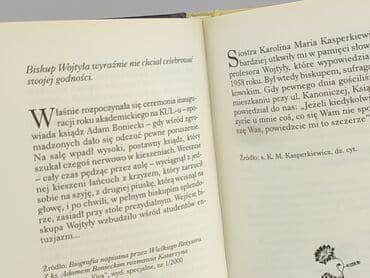 Biskup Wojtyła wyraźnie nie chciał celebrować
swojej godności.
Właśnie rozpoczynała się ceremonia inaugu-
racji roku akademickiego na KUL-u – opo-
wiada ksiądz Adam Boniecki – gdy wśród zgro-
madzonych dało się odczuć pewne poruszenie.
Na salę wpadł wysoki, postawny ksiądz, który
szukał czegoś nerwowo w kieszeniach. Wreszcie
– cały czas pędząc przez aulę – wyciągnął z jed-
nej kieszeni łańcuch z krzyżem, który zarzucił
sobie na szyję, z drugiej piuskę, którą wcisnął na
głowę, i po chwili, w pełnym biskupim splendo-
rze, zasiadł przy stole prezydialnym. Wejście bi-
skupa Wojtyły wzbudziło wśród studentów en-
tuzjazm...
Źródło: Biografia napisana przez Wielkiego Reżysera.
Z ks. Adamem Bonieckim rozmawia Katarzyna
wyd. specjalne, nr 1/2000
Siostra Karolina Maria Kasperkiewicz
bardziej utkwiły mi w pamięci słowa
profesora Wojtyły, które wypowiedział
1958 roku. Był wtedy biskupem, sufraga
kowskim. Gdy pewnego dnia gościliś
mieszkaniu przy ul. Kanoniczej, Ksiądz
powiedział do nas: „Jeżeli kiedykolw
we mnie coś, co się Wam nie spod
szę Was, powiedzcie mi to szczerze”.
Źródło: s. K. M. Kasperkiewicz, dz. cyt.